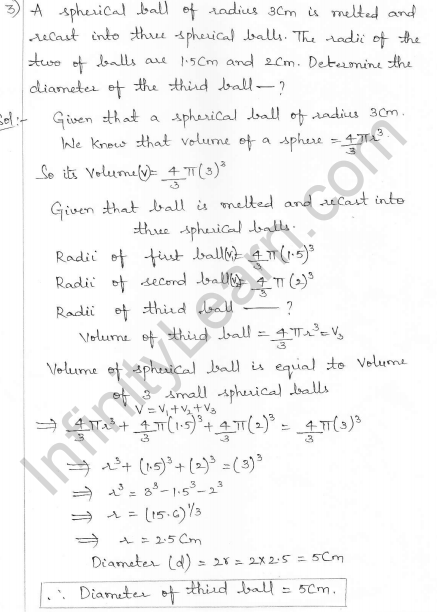 3) A spherical ball of radius 3cm is melted and
recast into three spherical balls. The radii of the
two of balls are 1.5cm and 2cm. Determine the
diameter of the third ball — ?
Sol:- Given that a spherical ball of radius 3cm.
We know that volume of a sphere = 4/3 πr³.
So its Volume(v) = 4/3 π(3)³
Given that ball is melted and recast into
three spherical balls.
Radii of first ball(v₁) = 4/3 π(1.5)³
Radii of second ball(v₂) = 4/3 π(2)³
Radii of third ball — ?
Volume of third ball = 4/3 πr³ = V₃
Volume of spherical ball is equal to Volume
of 3 small spherical balls
V = V₁ + V₂ + V₃
⇒ 4/3 πr³ + 4/3 π(1.5)³ + 4/3 π(2)³ = 4/3 π(3)³
⇒ r³ + (1.5)³ + (2)³ = (3)³
⇒ r³ = 3³ - 1.5³ - 2³
⇒ r = (15.6)^1/3
⇒ r = 2.5cm
Diameter (d) = 2r = 2×2.5 = 5cm
∴ Diameter of third ball = 5cm.
InfinityLearn.com